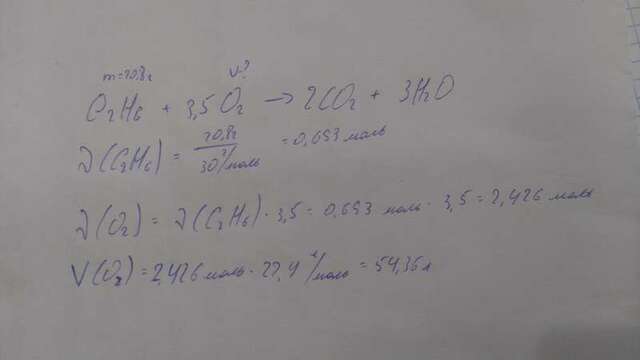 m=20,8г V-?
C2H6 + 3,5O2 → 2CO2 + 3H2O
ν(C2H6) = 20,8г / 30 г/моль = 0,693 моль
ν(O2) = ν(C2H6) · 3,5 = 0,693 моль · 3,5 = 2,426 моль
V(O2) = 2,426 моль · 22,4 л/моль = 54,35 л